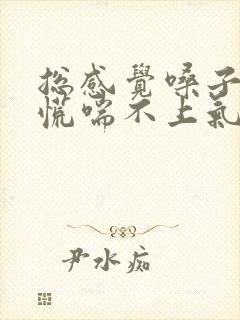 总感覺嗓子
慌喘不上氣
尹水痴